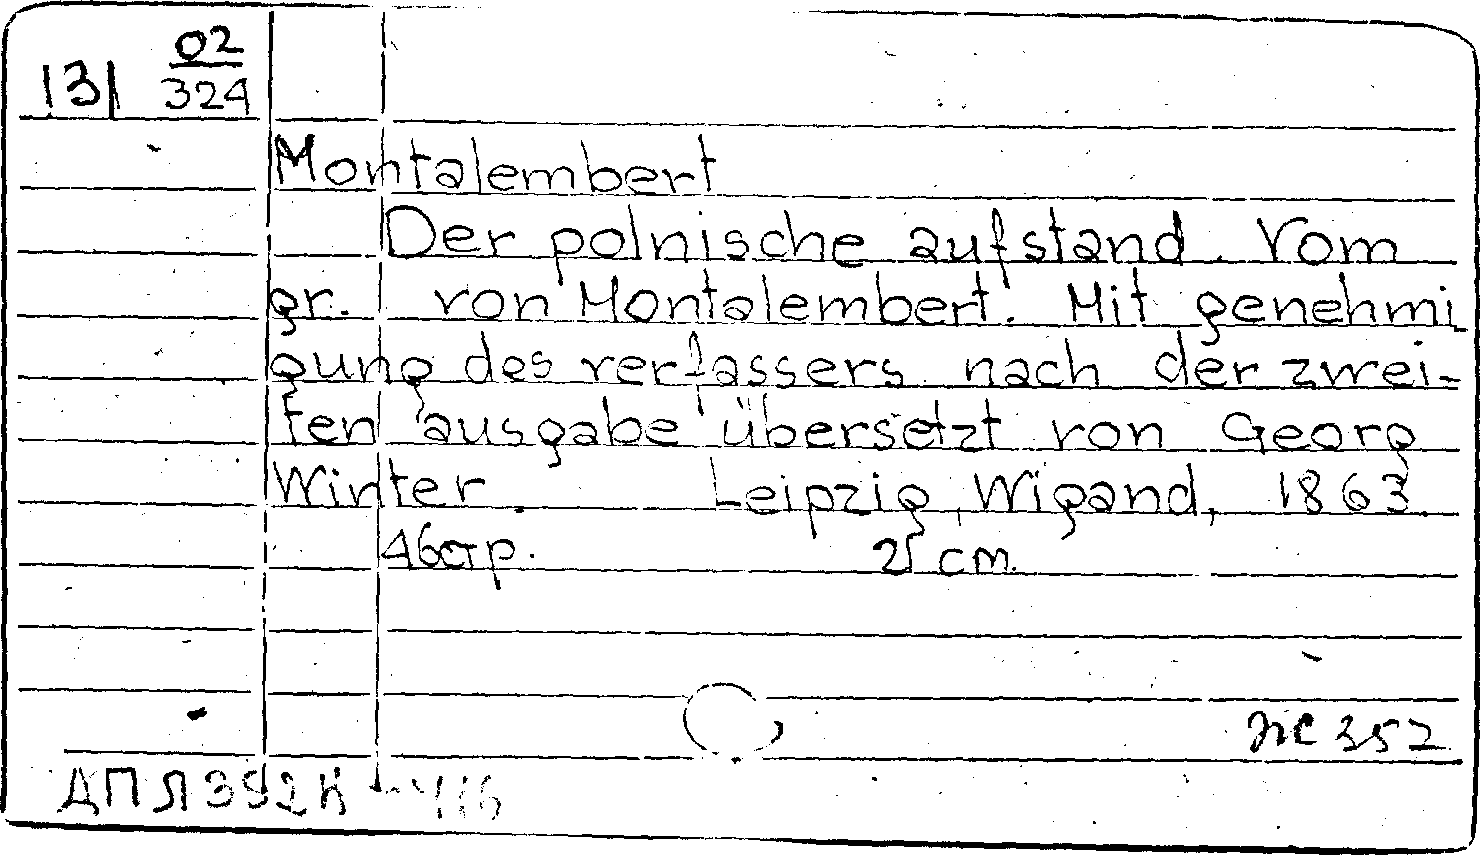 131 02/324
Montalembert
Der polnische aufstand. Vom
gr. von Montalembert. Mit genehmi
gung des verfassers nach der zwei-
ten ausgabe übersetzt von Georg
Winter. Leipzig, Wigand, 1863.
46стр. 21 cm.
пс 352
ДПЛ 392 К